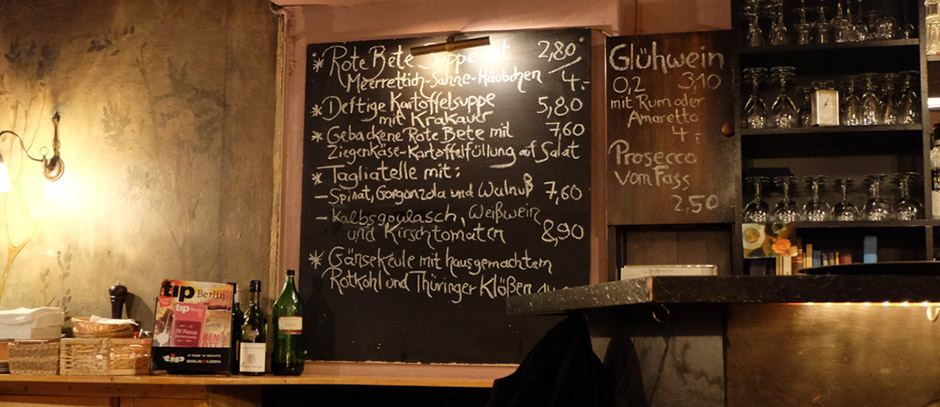 * Rote Bete Suppe mit 2,80/
Meerrettich-Sahne-Häubchen 4.-
* Deftige Kartoffelsuppe 5,80
mit Krakauer
* Gebackene Rote Bete mit 7,60
Ziegenkäse-Kartoffelfüllung auf Salat
* Tagliatelle mit:
- Spinat, Gorgonzola und Walnuß 7,60
- Kalbsgoulasch, Weißwein
und Kirschtomaten 8,90
* Gänsekeule mit hausgemachtem
Rotkohl und Thüringer Klößen
Glühwein
0,2 3,10
mit Rum oder
Amaretto
4.-
Prosecco
vom Fass
2,50
tip Berlin
tip